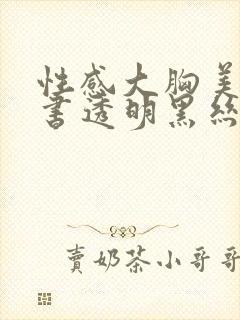 性感大胸美
書透明黑絲
賣奶茶小哥哥